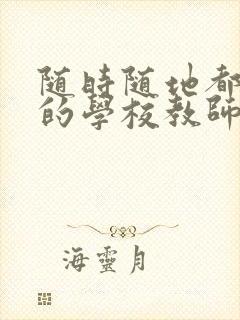 随時随地都
的學校教師
海靈月